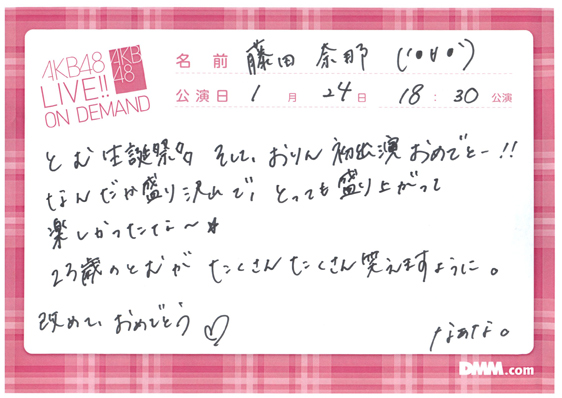 AKB48
LIVE!!
ON DEMAND
AKB
48
名前 藤田 奈那 (´●∀●`)
公演日 1月 24日 18:30 公演
とむ生誕祭 そして、おりん初出演おめでとー!!
なんだか盛り沢山で、とっても盛り上がって
楽しかったな〜☆
23歳のとむが たくさんたくさん笑えますように。
改めて、おめでとう♡
なぁな。
DMM.com